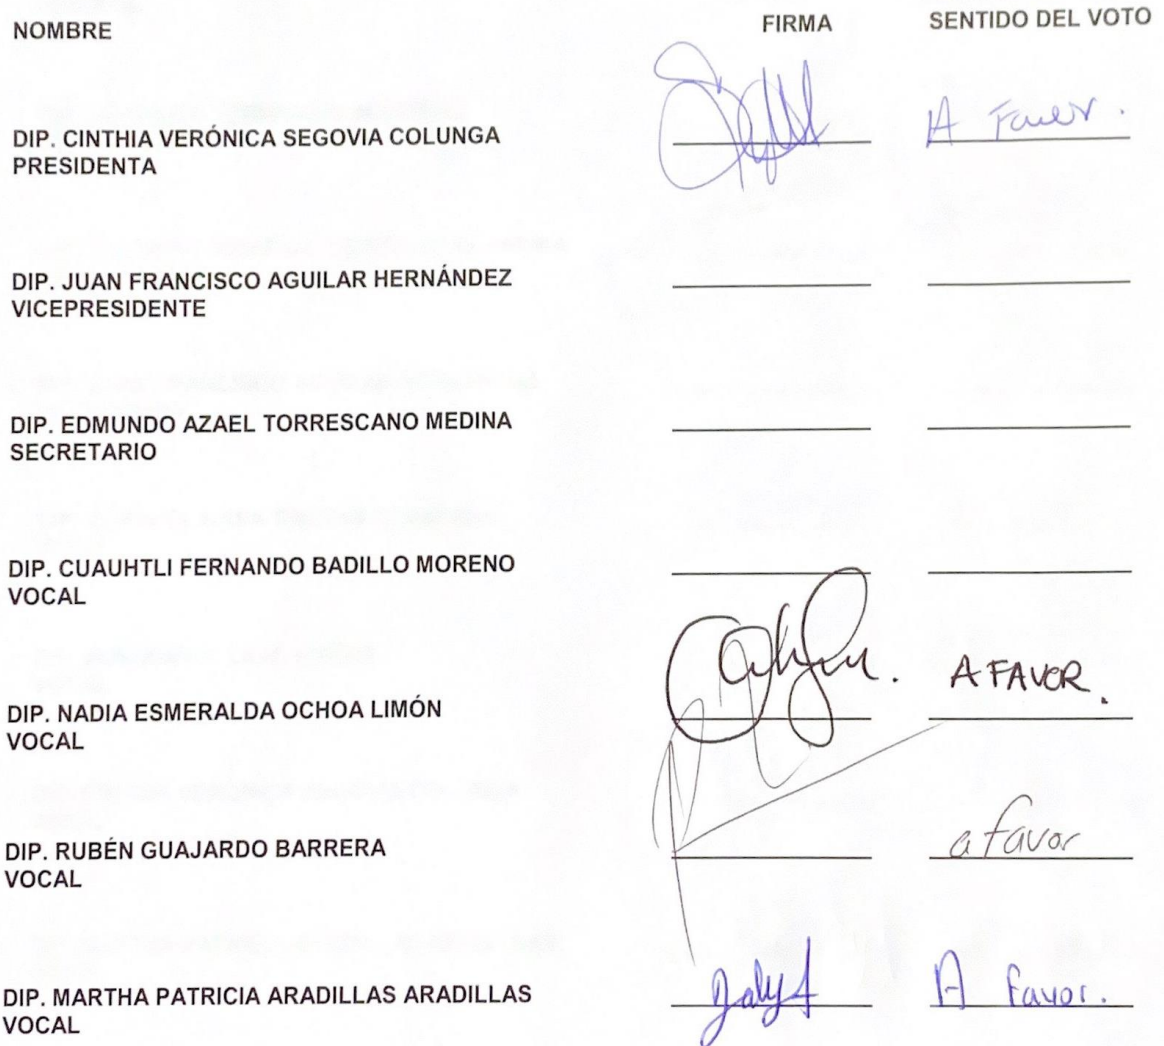 NOMBRE FIRMA SENTIDO DEL VOTO
DIP. CINTHIA VERÓNICA SEGOVIA COLUNGA A Favor.
PRESIDENTA
DIP. JUAN FRANCISCO AGUILAR HERNÁNDEZ
VICEPRESIDENTE
DIP. EDMUNDO AZAEL TORRESCANO MEDINA
SECRETARIO
DIP. CUAUHTLI FERNANDO BADILLO MORENO
VOCAL
DIP. NADIA ESMERALDA OCHOA LIMÓN A FAVOR.
VOCAL
DIP. RUBÉN GUAJARDO BARRERA a favor
VOCAL
DIP. MARTHA PATRICIA ARADILLAS ARADILLAS A favor.
VOCAL